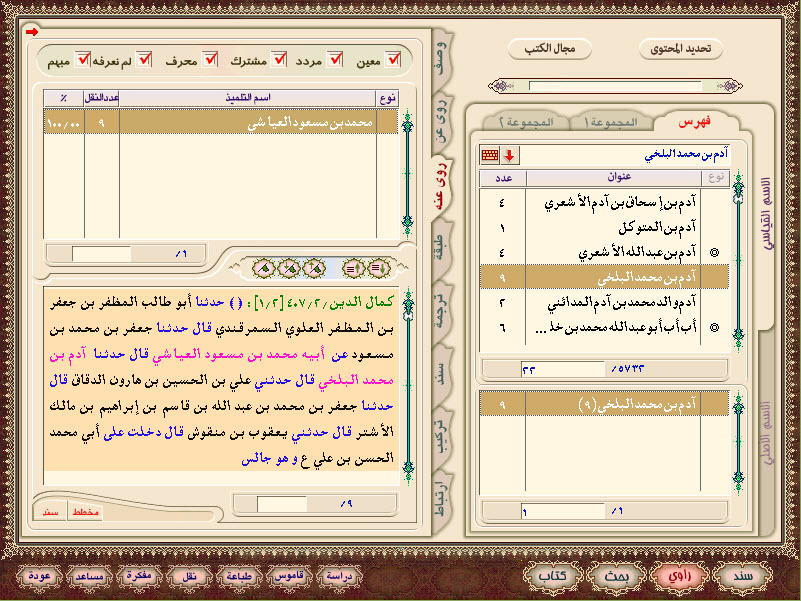 تحديد المحتوى
مجال الكتب
فهرس
المجموعة ١
المجموعة ٢
الاسم القياسي
الاسم الأصلي
آدم بن محمد البلخي
نوع
عنوان
عدد
آدم بن إسحاق بن آدم الأشعري ٤
آدم بن المتوكل ١
آدم بن عبدالله الأشعري ٤
آدم بن محمد البلخي ٩
آدم والد محمد بن آدم المدائني ٢
أب أب أبو عبدالله محمد بن خلـ ... ٦
٥٧٣٢/ ٢٢
آدم بن محمد البلخي (٩) ٩
١/ ١
معين
مردد
مشترك
محرف
لم نعرفه
مبهم
نوع
اسم التلميذ
عدد النقل
٪
محمد بن مسعود العياشي ٩ ١٠٠/٠٠
١/
وصف
روى عن
روى عنه
طبقة
ترجمة
سند
تركيب
ارتباط
كمال الدين ٤٠٧/٢/ [١/٢] : ( ) حدثنا أبو طالب المظفر بن جعفر
بن المظفر العلوي السمرقندي قال حدثنا جعفر بن محمد بن
مسعود عن أبيه محمد بن مسعود العياشي قال حدثنا آدم بن
محمد البلخي قال حدثني علي بن الحسين بن هارون الدقاق قال
حدثنا جعفر بن محمد بن عبد الله بن قاسم بن إبراهيم بن مالك
الأشتر قال حدثني يعقوب بن منقوش قال دخلت على أبي محمد
الحسن بن علي ع و هو جالس
٩/
مخطط
سند
سند
راوي
بحث
كتاب
دراسة
قاموس
طباعة
نقل
مفكرة
مساعد
عودة